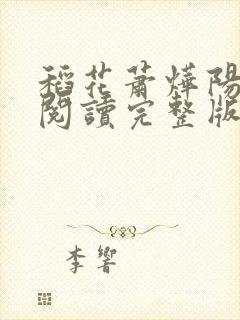 稻花蕭燁陽
閱讀完整版
李響